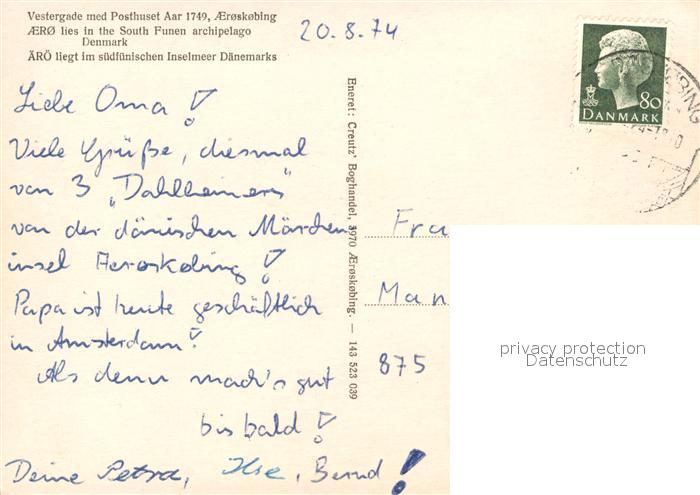 Vestergade med Posthuset Aar 1749, Ærøskøbing
ÆRØ lies in the South Funen archipelago
Denmark
ÄRÖ liegt im südfünischen Inselmeer Dänemarks
20.8.74
80
DANMARK
Liebe Oma!
Viele Grüße, diesmal
von 3 „Dahlheimern"
von der dänischen Märchen
insel Aeroskobing!
Papa ist heute geschäftlich
in Amsterdam!
Als denn mach's gut
bis bald!
Deine Petra, Ilse, Bernd!
Eneret: Creutz' Boghandel, 5970 Ærøskøbing. — 143 523 039
Fra
Man
875
privacy protection
Datenschutz